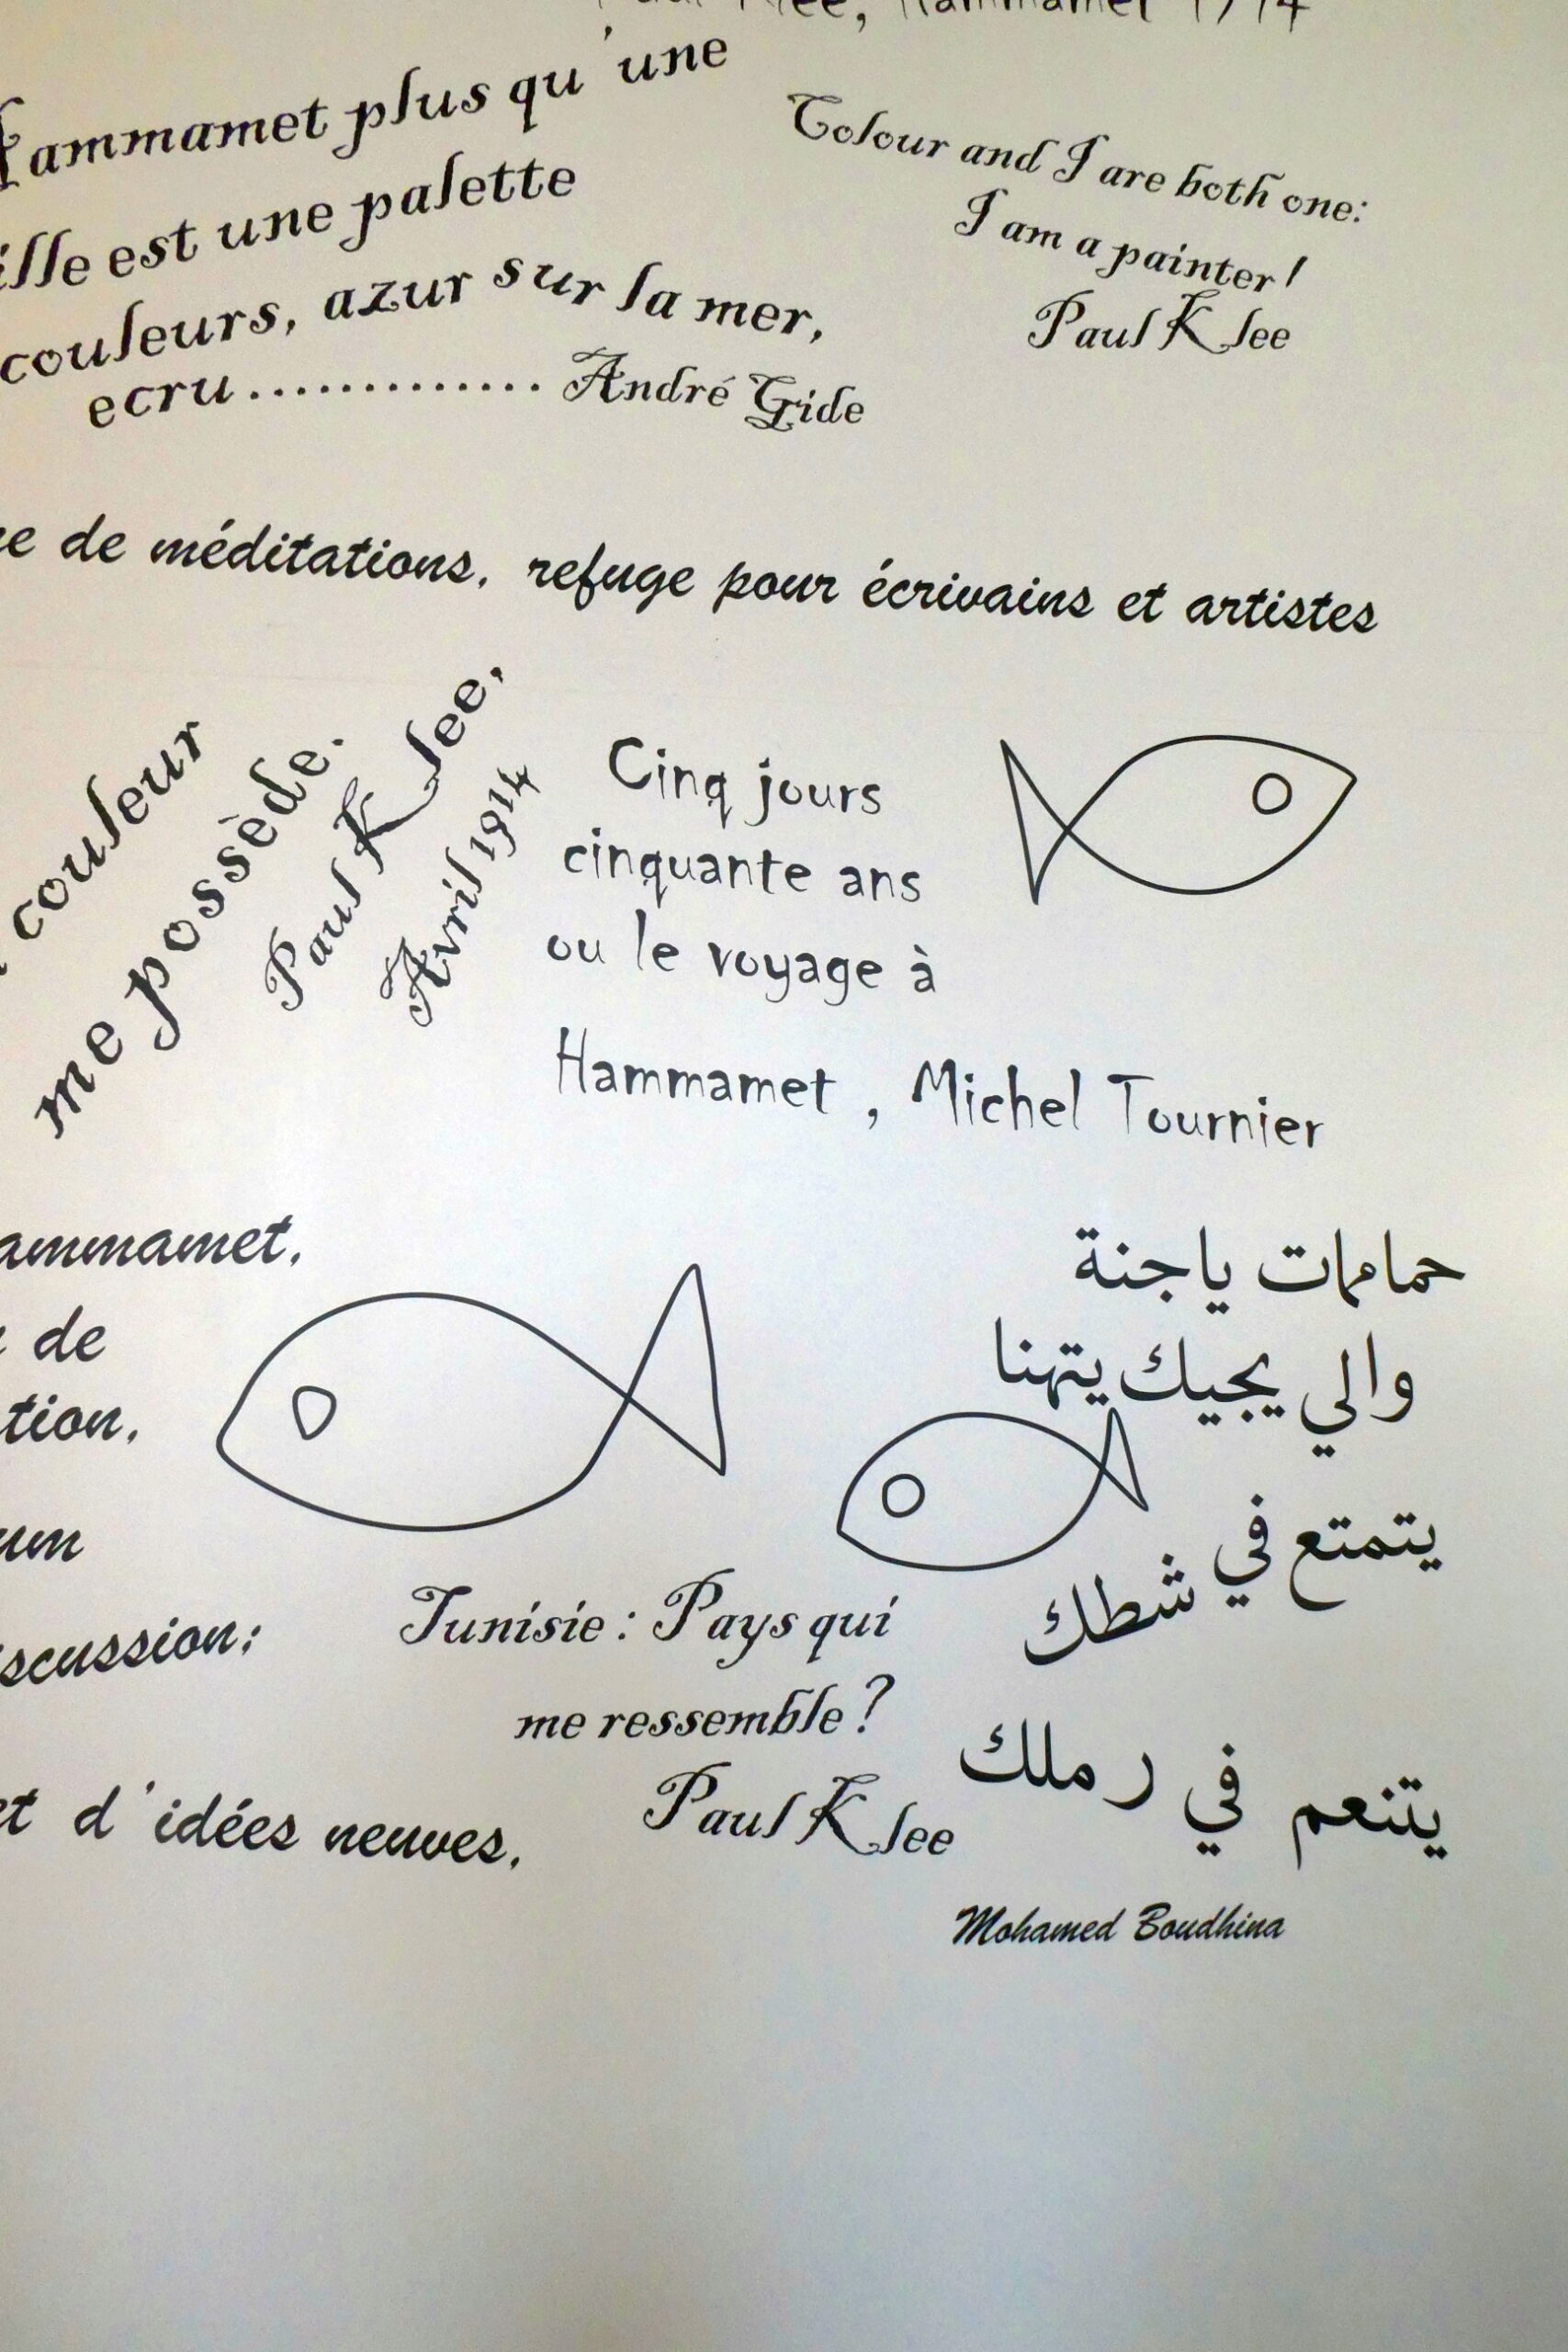 Paul Klee, Hammamet 1914
Hammamet plus qu'une
ille est une palette
couleurs, azur sur la mer,
ecru.............. André Gide
Colour and I are both one:
I am a painter!
Paul Klee
de méditations, refuge pour écrivains et artistes
couleur
me possède.
Paul Klee,
Avril 1914
Cinq jours
cinquante ans
ou le voyage à
Hammamet, Michel Tournier
ammamet,
de
tion,
um
scussion;
et d'idées neuves,
Tunisie : Pays qui
me ressemble ?
Paul Klee
حمامات ياجنة
والي يجيك يتهنا
يتمتع في شطك
يتنعم في رملك
Mohamed Boudhina